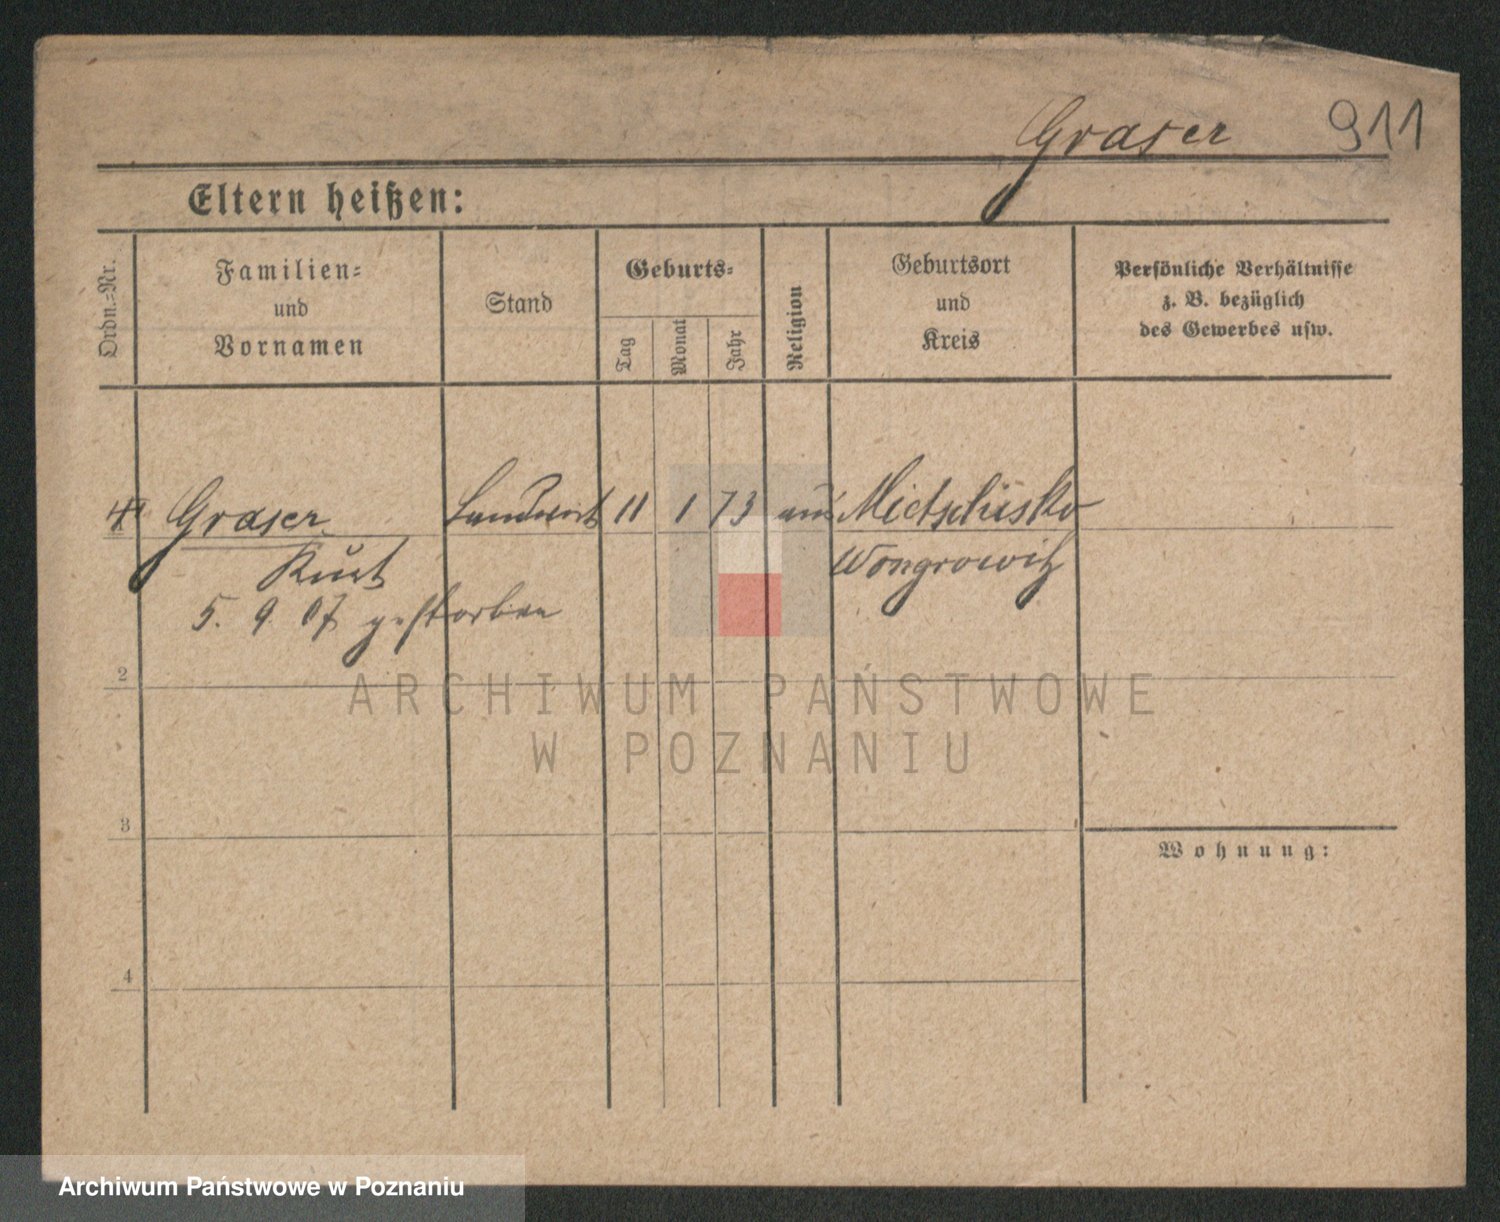 Graser 911
Eltern heißen:
Ordn.-Nr.
Familien-
und
Vornamen
Stand
Geburts-
Tag
Monat
Jahr
Religion
Geburtsort
und
Kreis
Persönliche Verhältnisse
z. B. bezüglich
des Gewerbes usw.
Graser Landwirt 11 1 73 Mietschisko
Kurt Wongrowitz
5. 9 07 gestorben
2
3
4
Wohnung:
ARCHIWUM PAŃSTWOWE
W POZNANIU
Archiwum Państwowe w Poznaniu